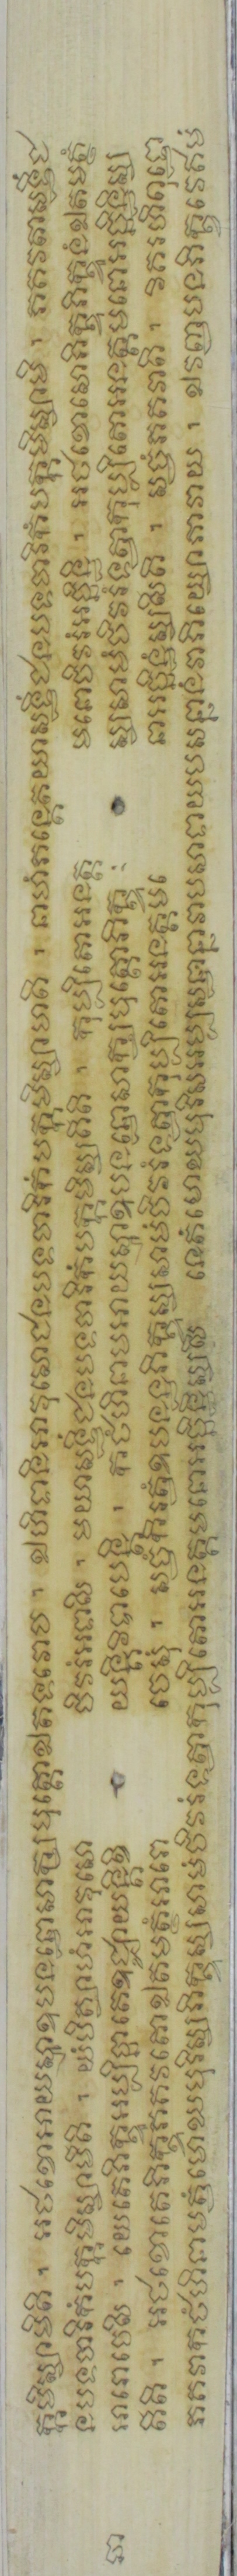 ក្កមិស្សាមីតិ ។ អថខោអាយស្មាឧបនន្ទោសក្យបុត្តោឯតទវោច ។ ឯហិទានិអាវុសោជនបទចារិកំបក្កមិស្សាមាតិ ។ នាហំភន្តេតយាសទ្ធឹជនបទចារិកំបក្កមិស្សាមិ ។ ភគវតាសទ្ធឹជ
នបទចារិកំបក្កមិស្សាមីតិ ។ យំបិត្យាហំអាវុសោ ចីវរំអទាសិ ។ មយាសទ្ធឹជនបទចារិកំបក្កមិស្សតីតិ ។ កុប្បិតោអនត្ត មនោចីវរំអច្ឆិន្ទិ ។ អថខោសោភិក្ខុភិក្ខូនំឯតមត្ថំ
អារោចេសិ ។ យេតេភិក្ខូអប្បិច្ឆាតេឧជ្ឈាយន្តិខិ យន្តិវិបាចេន្តិ ។ កថំហិនាមអាយស្មាឧបនន្ទោសក្យបុត្តោភិក្ខុ ស្សសាមំចីវរំទត្វាកុប្បិតោអនត្តមនោអច្ឆិន្ទិស្ស
តីតិ ។ អថខោតេភិក្ខូភគវតោឯតមត្ថំអារោ ចេសុំ ។ សច្ចំកិរត្វំឧបនន្ទភិក្ខុស្សសាមំចីវរំទត្វាកុប្បិតោអនត្តមនោ អច្ឆិន្ទិស្សសិតិ ។ សច្ចំភគវាតិ ។ វិគរហិពុទ្ធោ
ភគវាកថំហិនាមត្វំមោឃបុរិសភិក្ខុស្សសាមំចីវរំទត្វាកុប្បិតោអនត្តមនោអច្ឆិន្ទិស្សសិ នេតំមោឃបុរិសអប្បសន្នានំវាបសាទាយបសន្នានំវាភិយ្យោភាវាយ ។ ឯវញ្ចបនភិក្ខវេឥមំ